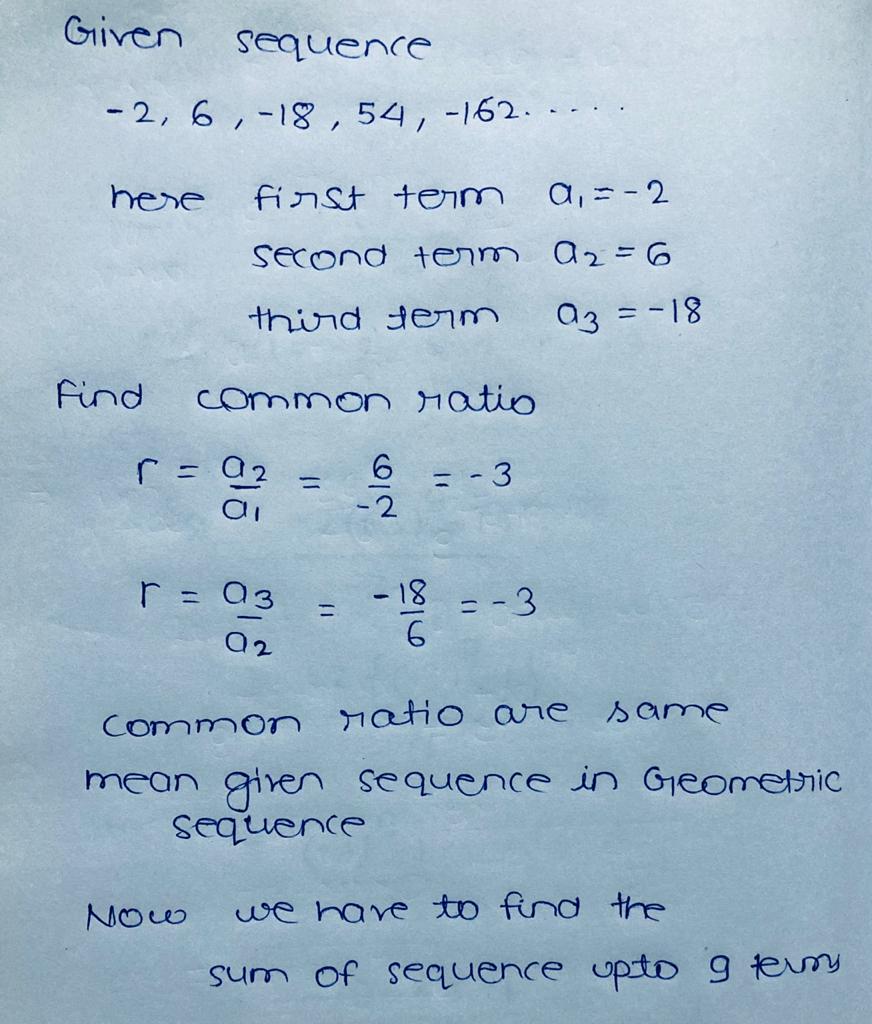 Given sequence
-2, 6, -18, 54, -162.....
here first term a₁ = -2
second term a₂ = 6
third term a₃ = -18
Find common ratio
r = a₂/a₁ = 6/-2 = -3
r = a₃/a₂ = -18/6 = -3
common ratio are same
mean given sequence in Geometric
sequence
Now we have to find the
sum of sequence upto 9 terms